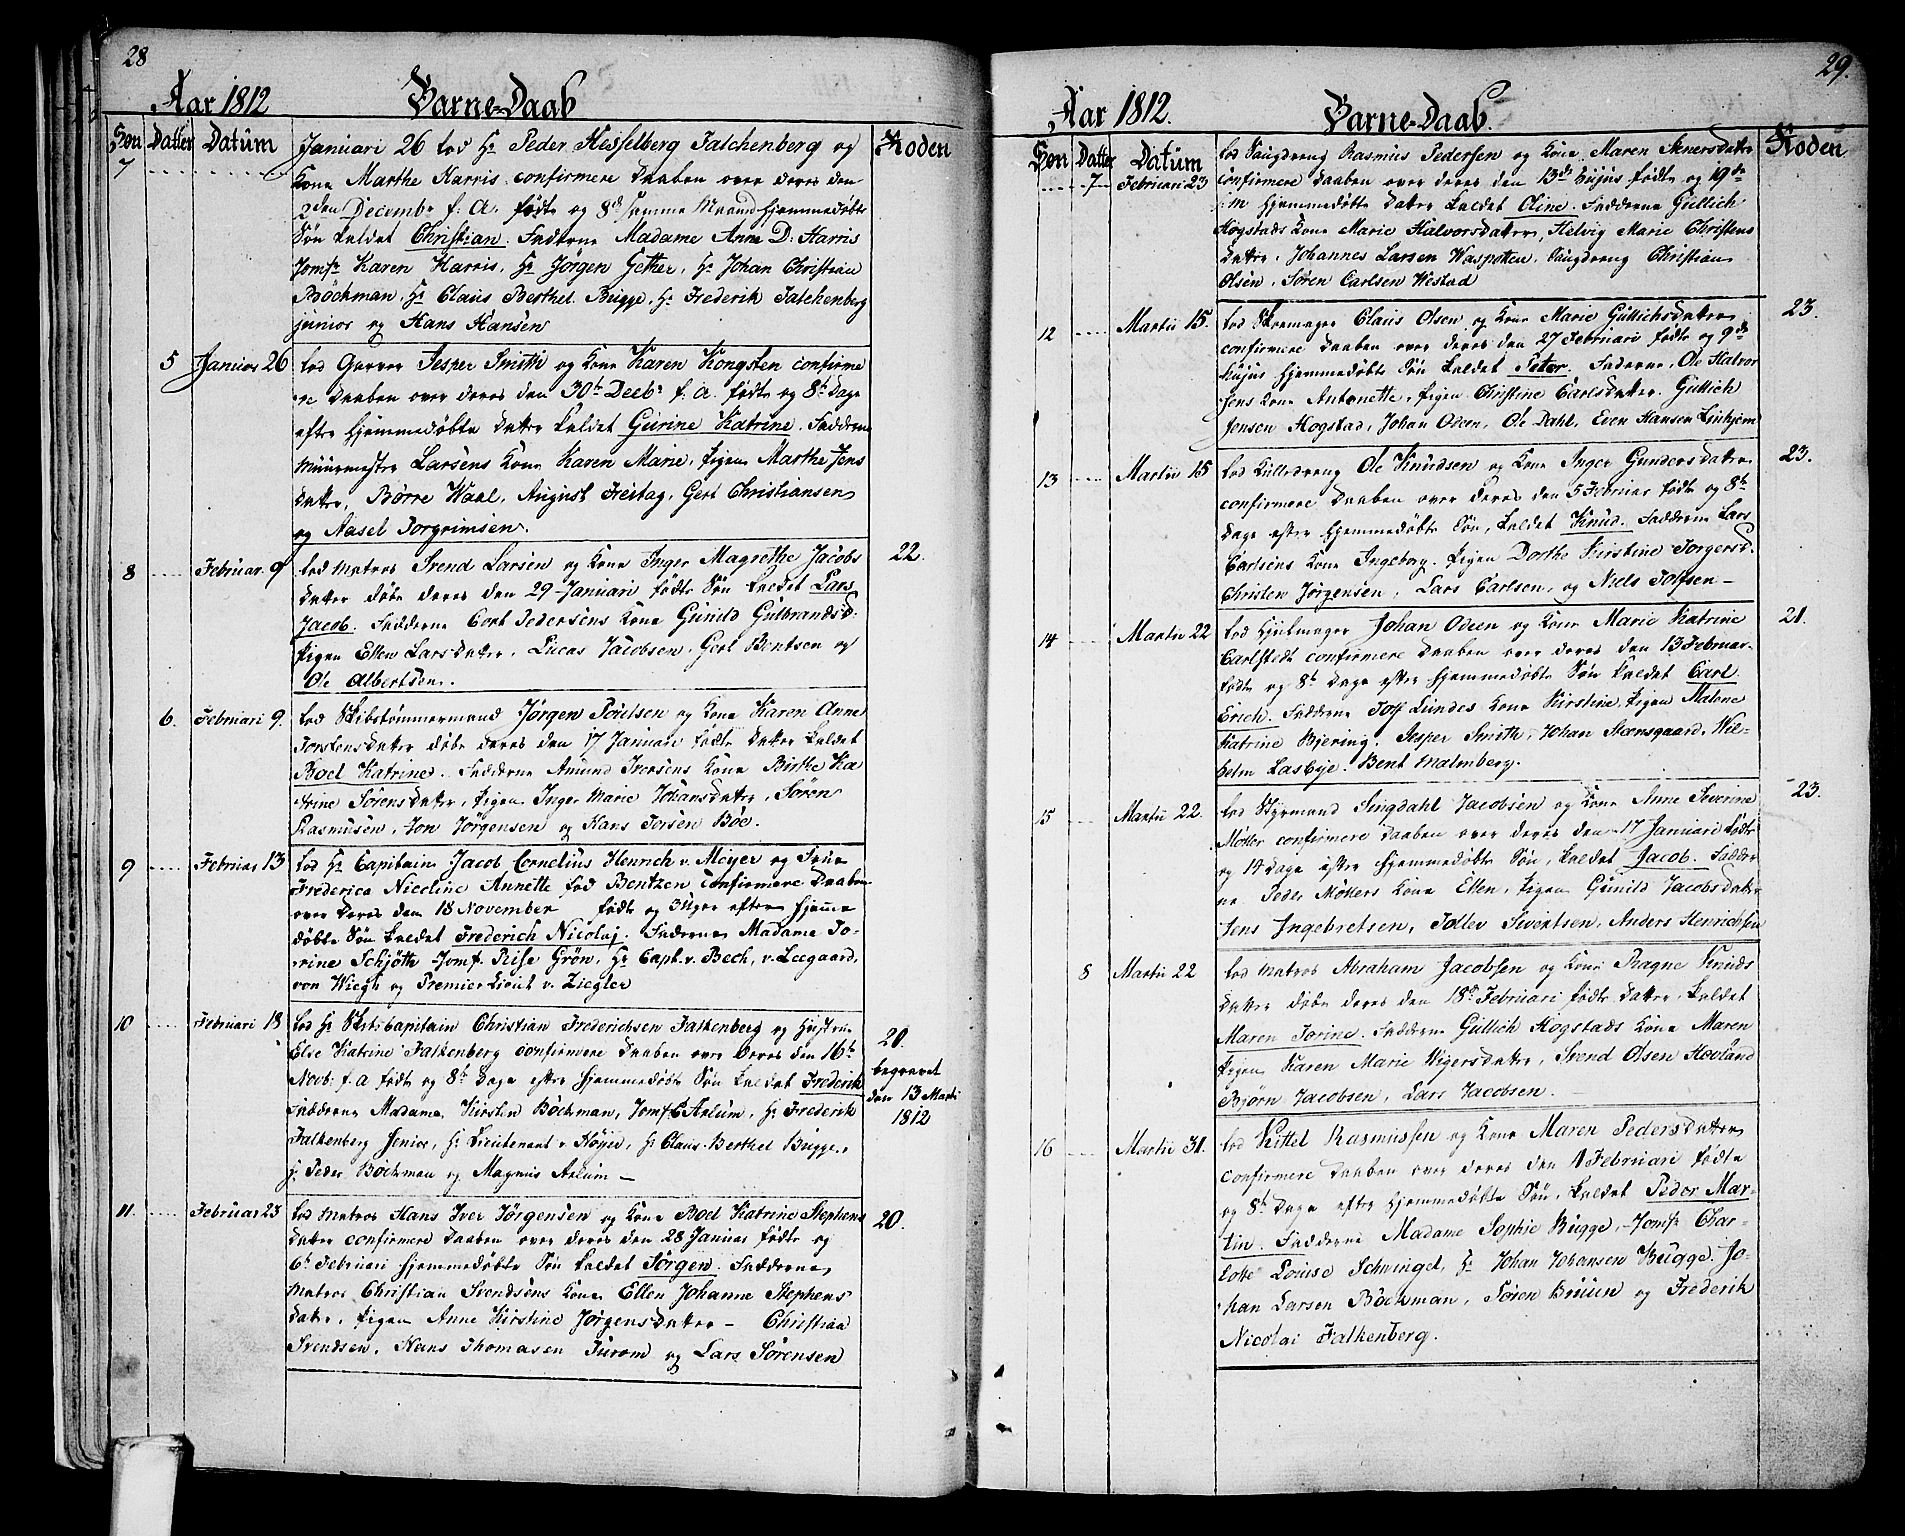 28
Aar 1812 Barne-Daab
Søn Datter Datum Roden
7 Januari 26 lod Hr Peder Hesselberg Falchenberg og
Kone Marthe Harris confirmere Daaben over deres den
2den Decembr f. A. fødte og 8de samme Maaned hjemmedøbte
Søn kaldet Christian. Fadderne Madame Anne D. Harris
Jomfr Karen Harris, Hr Jørgen Gether, Hr Johan Christian
Böckman, Hr Claus Berthel Bugge, Hr Frederik Falchenberg
junior og Hans Hansen
5 Januar 26 lod Garver Jesper Smith og Kone Karen Kongsten confirme
re Daaben over deres den 30te Decbr f. a. fødte og 8te Dage
efter hjemmedøbte Datter kaldet Gurine Katrine. Fadderne
Muurmester Larsens Kone Karen Marie, Pigen Marthe Jens
datter, Børre Waal, August Freitag, Gert Christiansen
og Aasel Torgrimsen.
8 Februar 9 lod Matros Svend Larsen og Kone Inger Magrethe Jacobs 22.
datter døbe deres den 29 Januari fødte Søn kaldet Lars
Jacob. Fadderne Cort Pedersens Kone Gunild Gulbrandsd:
Pigen Ellen Larsdatter, Lucas Jacobsen, Gert Bentsen og
Ole Albertsen.
6. Februari 9. lod Skibstømmermand Jørgen Povelsen og Kone Karen Anne
Torstensdatter døbe deres den 17 Januari fødte Datter kaldet
Boel Katrine. Fadderne Amund Iversens Kone Birthe Ka
trine Sørensdatter, Pigen Inger Marie Johansdatter, Søren
Rasmusen, Jon Jørgensen og Hans Torsen Böe.
9 Februar 13 lod Hr Capitain Jacob Cornelius Henrich v. Meyer og Frue
Frederica Nicoline Annette fød Bentzen confirmere Daaben
over deres den 18 November fødte og 3 Uger efter hjemme
døbte Søn kaldet Frederich Nicolaj. Fadderne Madame To-
rine Schjøth Jomf. Reise Grön, Hr Capt. v. Bech, v. Leegaard,
von Wiegh og Premier Lieut v. Ziegler
10 Februari 18 lod Hr Skibscapitain Christian Frederichsen Falkenberg og Hustrue 20.
Else Katrine Falkenberg confirmere Daaben over deres den 16te begravet
Novb: f. a fødte og 8te Dage efter hjemmedøbte Søn kaldet Frederik den 13 Marti
Fadderne Madame Kirsten Böckman, Jomf. C Arlum, Hr Frederik 1812
Falkenberg Senior, Hr Lieutenant v Höyer, Hr Claus Berthel Bugge,
j. Peder Bockman og Magnus Arlum –
11. Februar 23 lod Matros Hans Iver Jørgensen og Kone Boel Katrine Stephens 20.
datter confirmere Daaben over deres den 28 Januar fødte og
6te Februari hjemmedøbte Søn kaldet Jørgen. Fadderne
Matros Christian Svendsens Kone Ellen Johanne Stephens
datter, Pigen Anne Kirstine Jørgensdatter – Christian
Svendsen, Hans Thomasen Furom og Lars Sørensen
29.
Aar 1812. Barne-Daab.
Søn Datter Datum Roden
7 Februari 23 lod Rasmus Pedersen og Kone Maren
confirmere Daaben over deres den 13de hujus fødte og 19de
s: m hjemmedøbte Datter kaldet Oline. Fadderne Gullich
Hogstads Kone Marie Halvorsdatter, Helvig Marie Christens
datter, Johannes Larsen Waspoten, Christian
Olsen, Søren Carlsen Westad
12 Martii 15. lod Skoemager Claus Olsen og Kone Marie Gullichsdatter 23.
confirmere Daaben over deres den 27 Februari fødte og 9de
hujus hjemmedøbte Søn kaldet Peter. Fadderne, Ole Halvor
sens Kone Antonette, Pigen Christine Carlsdatter. Gullich
Jensen Hogstad, Johan Odeen, Ole Dahl, Even Hansen
13 Martii 15 lod Ole Knudsen og Kone Inger Gundersdatter 23.
confirmere Daaben over deres den 5 Februar fødte og 8te
Dage efter hjemmedøbte Søn, kaldet Knud. Fadderne Lars
Carlsens Kone Ingeborg. Pigen Dorthe Kirstine Torgersd.
Christen Jørgensen, Lars Carlsen, og Niels Tolfsen –
14 Martii 22 lod Hjulmager Johan Odeen og Kone Marie Katrine 21.
Carlstedt confirmere Daaben over deres den 13 Februar
fødte og 8te Dage efter hjemmedøbte Søn kaldet Carl
Erich. Fadderne Tolf Lundes Kone Kirstine, Pigen Malene
Katrine Bjering. Jesper Smith, Johan Steensgaard. Wil-
helm Lasbye. Bent Malmberg.
15 Martii 22. lod Styrmand Singdahl Jacobsen og Kone Anne Severine 23.
Möller confirmere Daaben over deres den 17 Januari fødte
og 14 Dage efter hjemmedøbte Søn, kaldet Jacob. Fadder
ne Peder Möllers Kone Ellen, Pigen Gunild Jacobsdatter
Jens Ingebretsen, Tollev Sivertsen, Anders Henrichsen
8 Martii 22 lod Matros Abraham Jacobsen og Kone Ragne Knuds
datter døbe deres den 18de Februari fødte Datter, kaldet
Maren Torine. Fadderne Gullich Hogstads Kone Maren
Pigen Karen Marie Wigersdatter, Svend Olsen Hovland
Bjørn Jacobsen, Lars Jacobsen.
16 Martii 31. lod Kittel Rasmussen og Kone Maren Pedersdatter
confirmere Daaben over deres den 1 Februari fødte
og 8te Dage efter hjemmedøbte Søn, kaldet Peder Mar-
tin. Fadderne Madame Sophie Bugge, Jomfr Char-
lotte Louise Schwingel, Hr Johan Johansen Bugge. Jo-
han Larsen Böckman, Søren Bruun og Frederik
Nicolai Falkenberg.